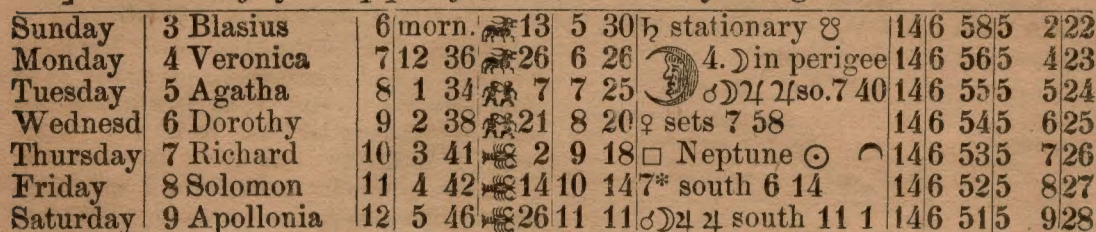 Sunday 3 Blasius 6 morn. 13 5 30 ♄ stationary ☋ 14 6 58 5 2 22
Monday 4 Veronica 7 12 36 26 6 26 4. ☽ in perigee 14 6 56 5 4 23
Tuesday 5 Agatha 8 1 34 7 7 25 ☌☽♃ ♃so. 7 40 14 6 55 5 5 24
Wednesd 6 Dorothy 9 2 38 21 8 20 ♀ sets 7 58 14 6 54 5 6 25
Thursday 7 Richard 10 3 41 2 9 18 □ Neptune ☉ 14 6 53 5 7 26
Friday 8 Solomon 11 4 42 14 10 14 7* south 6 14 14 6 52 5 8 27
Saturday 9 Apollonia 12 5 46 26 11 11 ☌☽♃ ♃ south 11 1 14 6 51 5 9 28